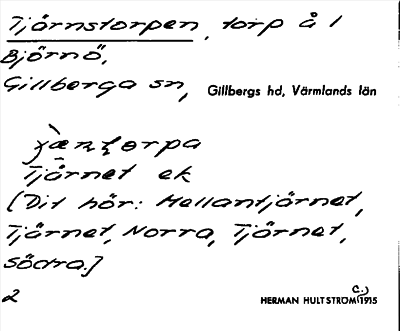 Tjärnstorpen, torp å 1
Björnö,
Gillberga sn, Gillbergs hd, Värmlands län
Tjärnet ek
[Dit hör: Mellantjärnet,
Tjärnet, Norra, Tjärnet,
Södra.]
2
HERMAN HULTSTRÖM (c.) 1915